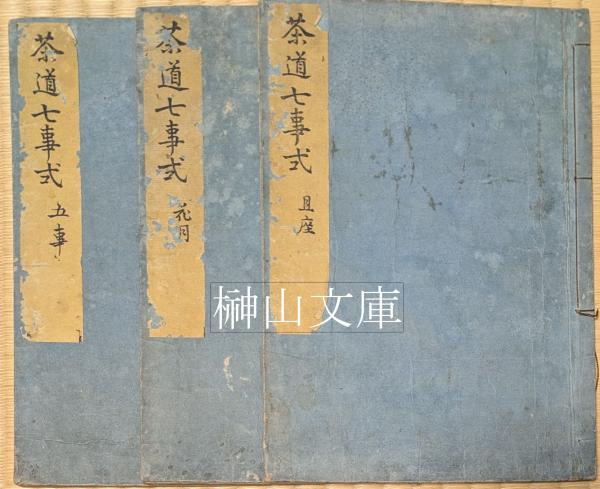 茶道七事式 且座
茶道七事式 花月
茶道七事式 五事
榊山文庫